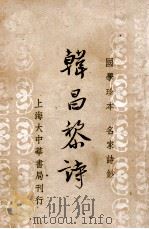 國學珍本 名家詩鈔
韓昌黎詩
上海大中華書局刊行